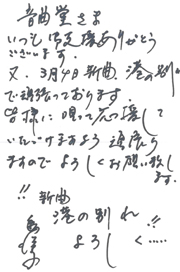 音曲堂さま
いつも御支援ありがとう
ございます。
又、3月4日新曲、港の別れ
で頑張っております。
皆様に唄って応援して
いただけますよう頑張り
ますのでよろしくお願い致し
ます。
!! 新曲
港の別れ !!
よろしく……